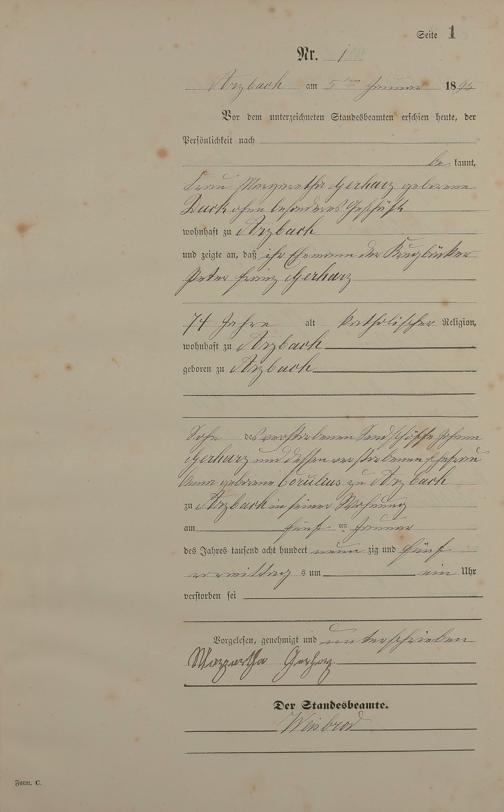 Seite 1
Nr. 1
Arzbach am 5ten Januar 1895
Vor dem unterzeichneten Standesbeamten erschien heute, der
Persönlichkeit nach
be kannt,
Frau Margaretha Gerharz geborene
ohne besonderes Geschäft
wohnhaft zu Arzbach
und zeigte an, daß ihr Ehemann der Krugbäcker
Peter Franz Gerharz
74 Jahre alt katholischer Religion,
wohnhaft zu Arzbach
geboren zu Arzbach
Sohn des verstorbenen Johann
Gerharz und dessen verstorbenen Ehefrau
Anna geborene Corcilius zu Arzbach
zu Arzbach in seiner Wohnung
am fünften Januar
des Jahres tausend acht hundert neun zig und fünf
vormittag s um ein Uhr
verstorben sei
Vorgelesen, genehmigt und unterschrieben
Margaretha Gerharz
Der Standesbeamte.
Weisbrod
Form. C.